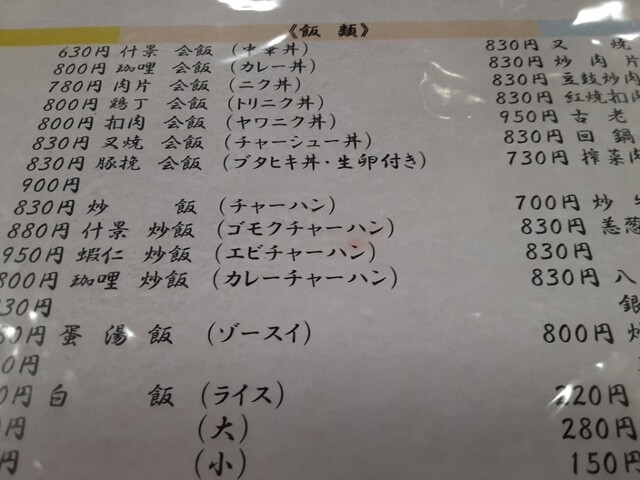 《飯 類》
630円 什景 会飯 (中華丼)
800円 珈哩 会飯 (カレー丼)
780円 肉片 会飯 (ニク丼)
800円 鶏丁 会飯 (トリニク丼)
800円 扣肉 会飯 (ヤワニク丼)
830円 叉焼 会飯 (チャーシュー丼)
830円 豚挽 会飯 (ブタヒキ丼・生卵付き)
900円
830円 炒 飯 (チャーハン)
880円 什景 炒飯 (ゴモクチャーハン)
950円 蝦仁 炒飯 (エビチャーハン)
800円 珈哩 炒飯 (カレーチャーハン)
30円
0円 蛋湯飯 (ゾースイ)
0円
0円 白 飯 (ライス)
円 (大)
円 (小)
830円 叉 焼
830円 炒 肉 片
830円 豆鼓炒肉
830円 紅焼扣肉
950円 古 老
830円 回 鍋
730円 搾菜肉
700円 炒
830円 葱
830円
830円 八
銀
800円 炒
220円
280円
150円